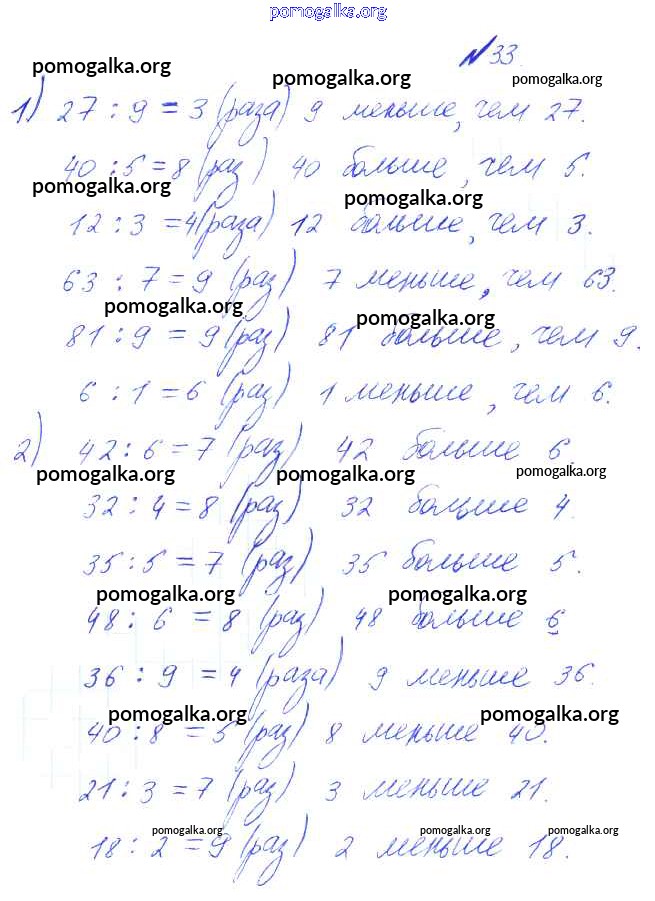 pomogalka.org
№ 33.
pomogalka.org
pomogalka.org
pomogalka.org
1) 27 : 9 = 3 (раза) 9 меньше, чем 27.
40 : 5 = 8 (раз) 40 больше, чем 5.
pomogalka.org
pomogalka.org
12 : 3 = 4 (раза) 12 больше, чем 3.
63 : 7 = 9 (раз) 7 меньше, чем 63.
pomogalka.org
pomogalka.org
81 : 9 = 9 (раз) 81 больше, чем 9.
6 : 1 = 6 (раз) 1 меньше, чем 6.
2) 42 : 6 = 7 (раз) 42 больше 6
pomogalka.org
pomogalka.org
pomogalka.org
32 : 4 = 8 (раз) 32 больше 4.
35 : 5 = 7 (раз) 35 больше 5.
pomogalka.org
pomogalka.org
48 : 6 = 8 (раз) 48 больше 6
36 : 9 = 4 (раза) 9 меньше 36.
pomogalka.org
pomogalka.org
40 : 8 = 5 (раз) 8 меньше 40.
21 : 3 = 7 (раз) 3 меньше 21.
pomogalka.org
pomogalka.org
pomogalka.org
18 : 2 = 9 (раз) 2 меньше 18.